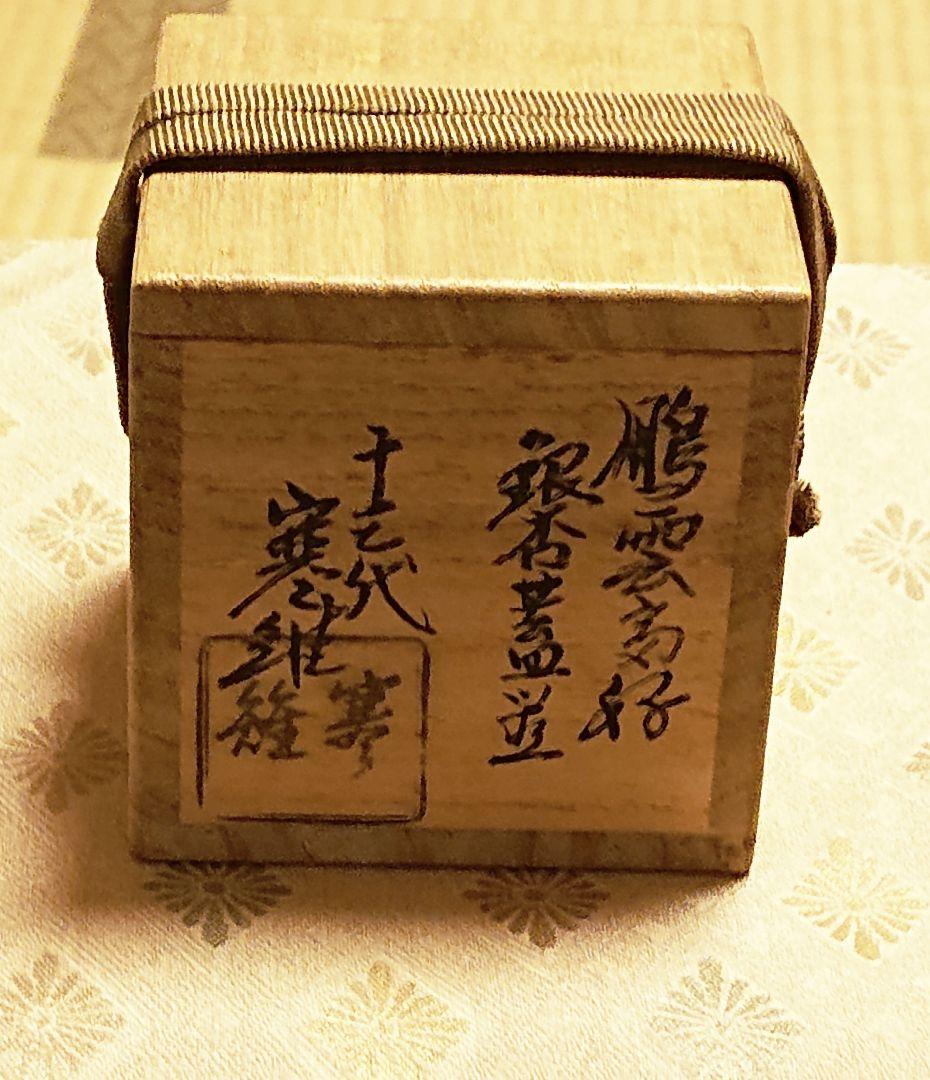 鵬雲斎好
銀杏蓋置
十三代
寒雉
寒雉